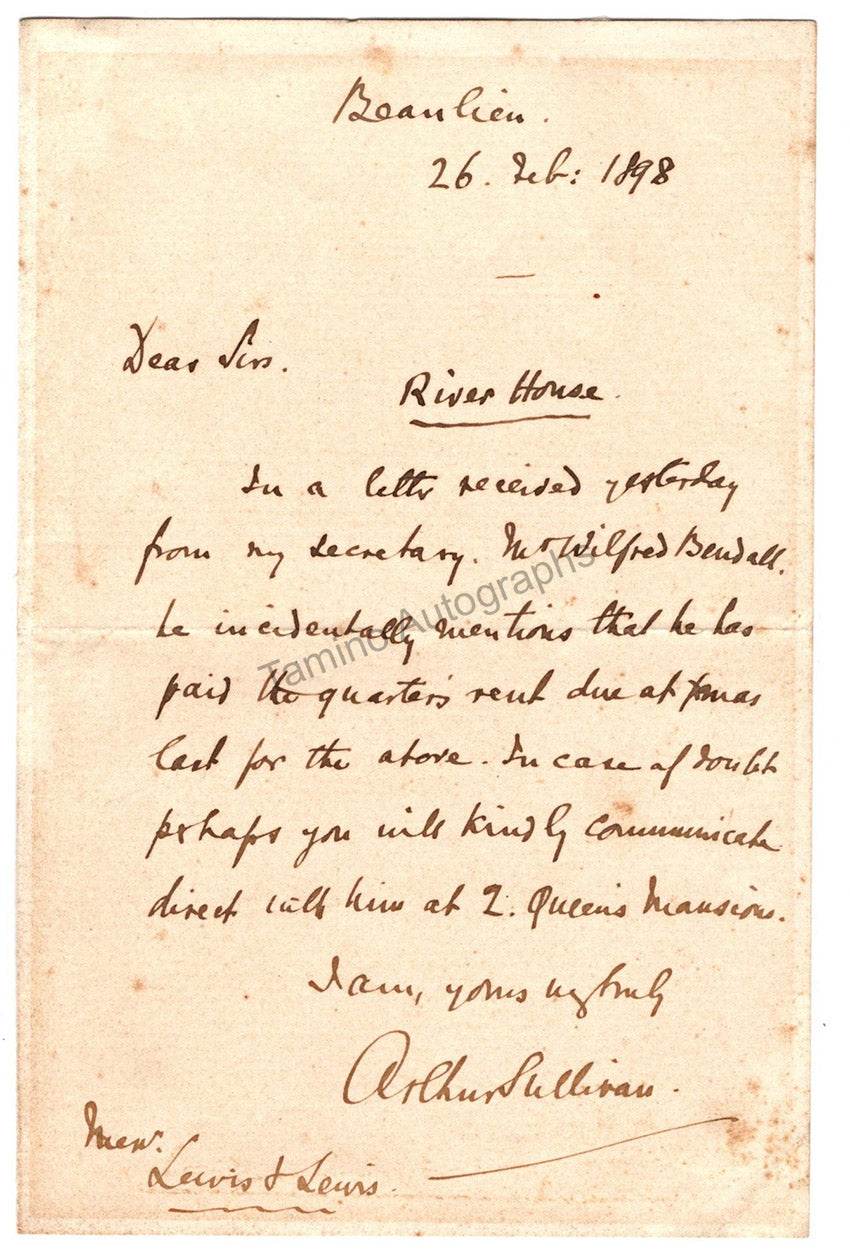 Beaulieu.
26. Feb: 1898
Dear Sirs.
River House.
In a letter received yesterday
from my secretary. Mr Wilfred Bendall.
he incidentally mentions that he has
paid the quarter's rent due at Xmas
last for the above. In case of doubt
perhaps you will kindly communicate
direct with him at 2. Queen's Mansions.
I am, yours very truly
Arthur Sullivan.
Messrs.
Lewis & Lewis.
Tamino Autographs